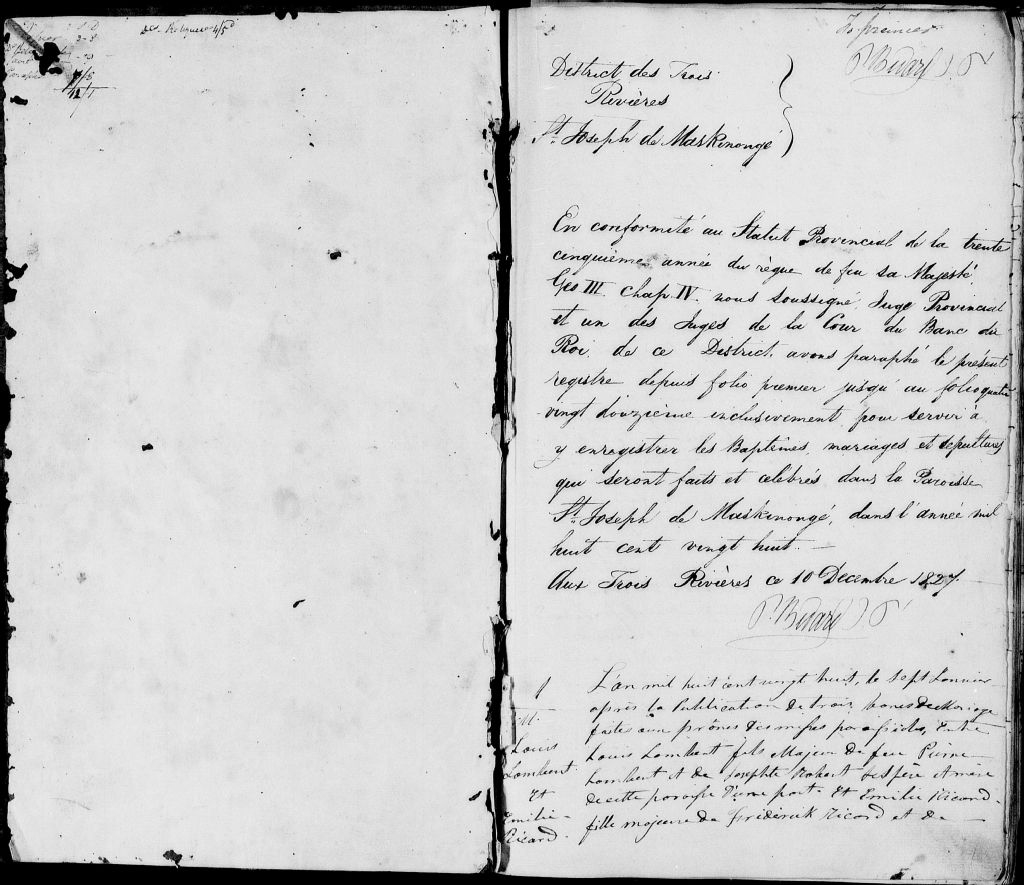 4/5
fo. premier
P. Bedard J. P.
District des Trois
Rivières
St. Joseph de Maskinongé
En conformité au Statut Provincial de la trente
cinquième année du règne de feu sa Majesté
Geo III. Chap. IV. nous soussigné Juge Provincial
et un des Juges de la Cour du Banc du
Roi de ce District, avons paraphé le présent
registre depuis folio premier jusqu'au folio quatre
vingt douzième inclusivement pour servir à
y enregistrer les Baptêmes, mariages et sepultures
qui seront faits et célébrés dans la Paroisse
St. Joseph de Maskinongé, dans l'année mil
huit cent vingt huit. —
Aux Trois Rivières ce 10 Decembre 1827
P. Bedard J. P.
1
M.
Louis
Lambert
Et
Emilie
Ricard
L'an mil huit cent vingt huit, le sept Janvier
après la Publication de trois bans de Mariage
faite aux prônes des messes paroissiales, Entre
Louis Lambert fils Majeur de feu Pierre
Lambert et de Josephte ses père et mère
de cette paroisse d'une part. Et Emilie Ricard
fille majeure de Fréderick Ricard et de